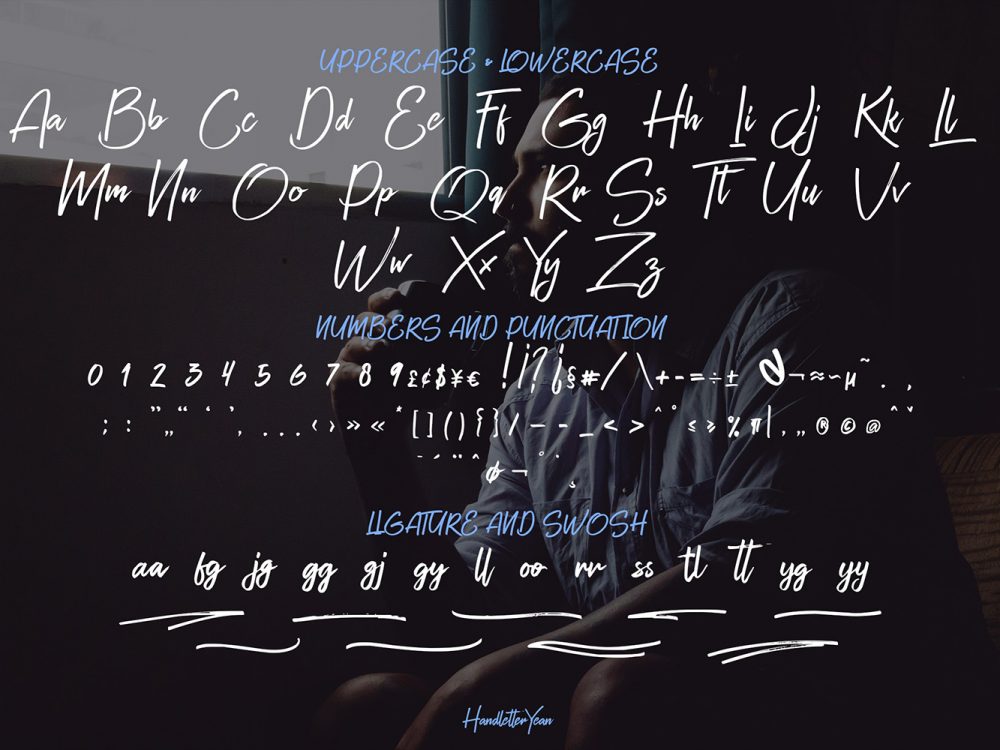 UPPERCASE & LOWERCASE
Aa Bb Cc Dd Ee Ff Gg Hh Ii Jj Kk Ll
Mm Nn Oo Pp Qq Rr Ss Tt Uu Vv
Ww Xx Yy Zz
NUMBERS AND PUNCTUATION
0 1 2 3 4 5 6 7 8 9 £ ¢ $ ¥ € ! ¡ ? ¿ § # / \ + - = ÷ ± & ¬ ≈ ~ µ ~ . ,
; : ” „ “ ‘ ’ ' , ... ‹ › » « * [ ] ( ) { } / – - _ < > ^ ° ≤ ≥ % ¶ | ‚ „ ® © @ ˆ ˇ
¯ ´ ¨ ˆ ø ¬ ° ˙ ¸
LIGATURE AND SWOSH
aa fg jg gg gj gy ll oo rr ss tl tt yg yy
HandletterYean